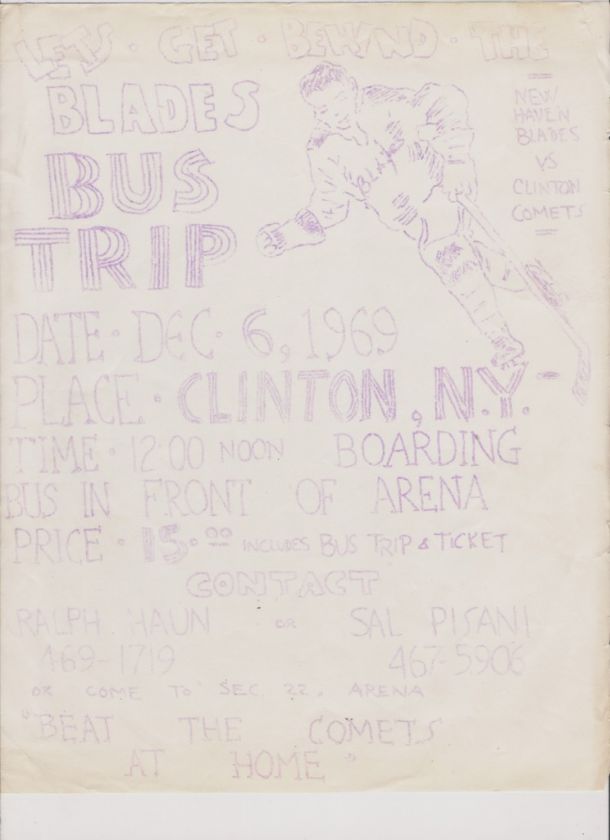 LETS · GET · BEHIND · THE
BLADES
BUS
TRIP
NEW
HAVEN
BLADES
VS
CLINTON
COMETS
BLADES
DATE · DEC · 6, 1969
PLACE · CLINTON, N.Y.
TIME · 12:00 NOON BOARDING
BUS IN FRONT OF ARENA
PRICE · 15.00 INCLUDES BUS TRIP & TICKET
CONTACT
RALPH HAUN OR SAL PISANI
469-1719 467-5906
OR COME TO SEC. 22, ARENA
"BEAT THE COMETS
AT HOME"